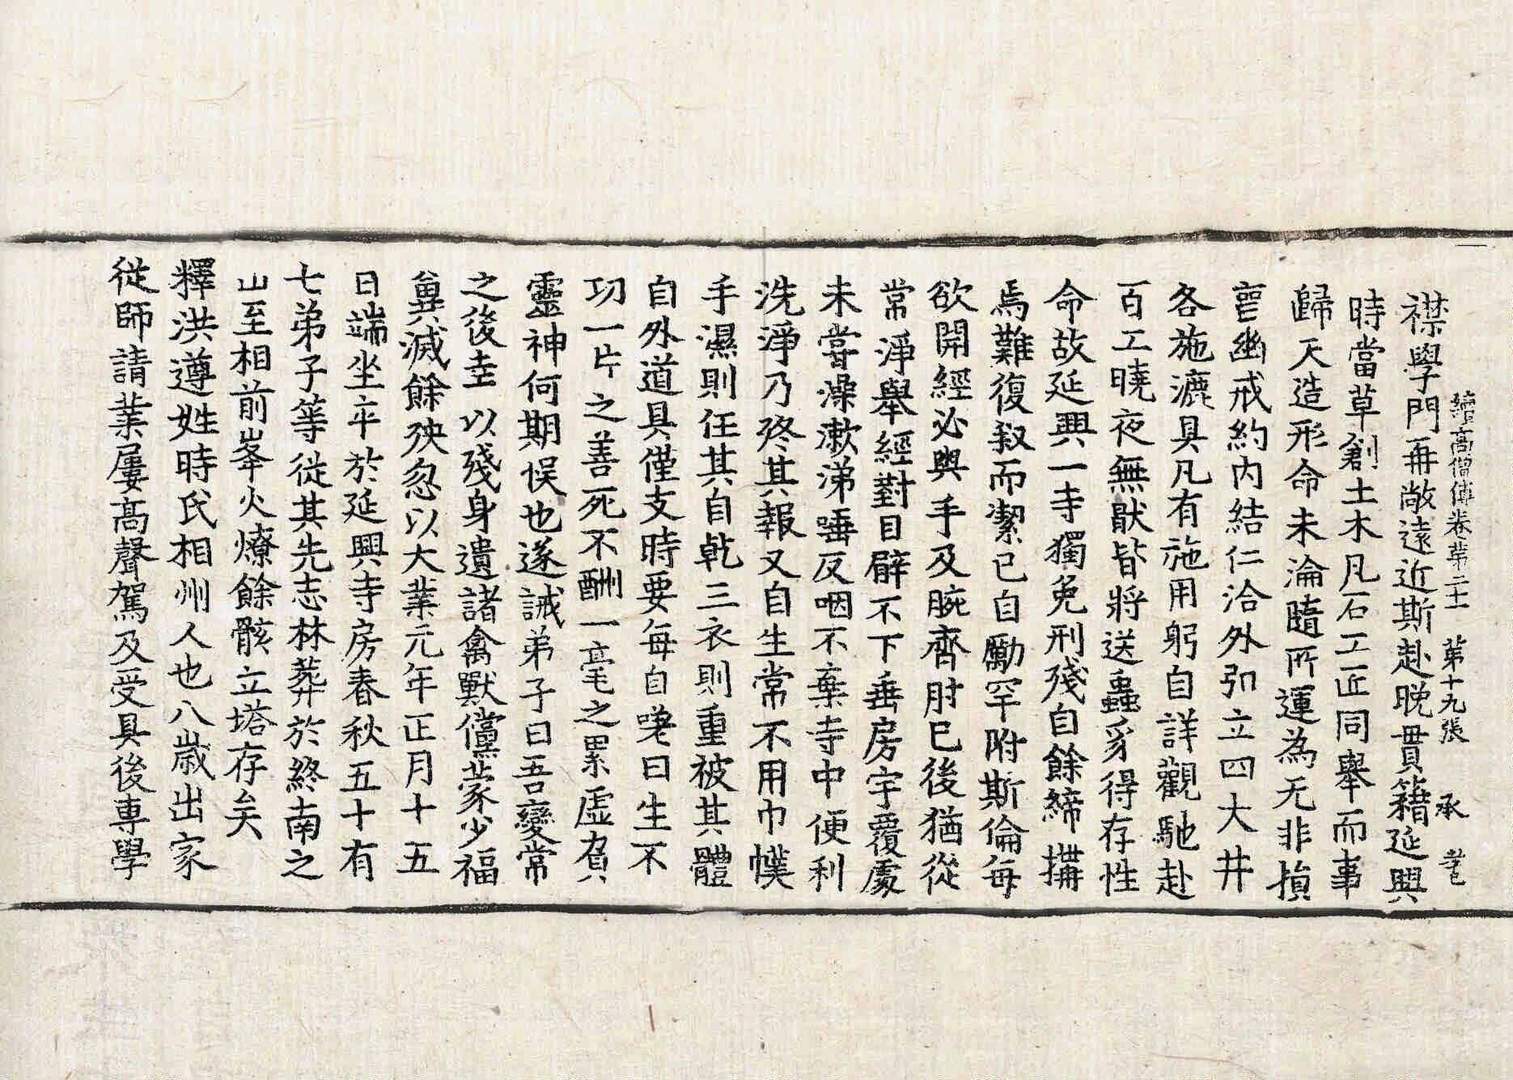 續高僧傳卷第二十一 第十九張 承
襟學門再敞遠近斯赴晚貫籍延興
時當草創土木凡石工匠同舉而事
歸天造形命未淪隨所運為无非損
喪幽戒約內結仁洽外弘立四大井
各施漉具凡有施用躬自詳觀馳赴
百工曉夜無猒皆將送蟲豸得存性
命故延興一寺獨免刑殘自餘締搆
焉難復叙而潔己自勵罕附斯倫每
欲開經必輿手及腕齊肘已後猶從
常淨舉經對目臂不下垂房宇覆處
未嘗澡漱涕唾反咽不棄寺中便利
洗淨乃終其報又自生常不用巾襆
手濕則任其自乾三衣則重被其體
自外道具僅支時要每自嘆曰生不
功一片之善死不酬一毫之累虛負
靈神何期悞也遂誡弟子曰吾變常
之後幸以殘身遺諸禽獸儻蒙少福
兾滅餘殃忽以大業元年正月十五
日端坐卒於延興寺房春秋五十有
七弟子等從其先志林葬於終南之
山至相前峯火燎餘骸立塔存矣
釋洪遵姓時氏相州人也八歲出家
從師請業屢高聲駕及受具後專學